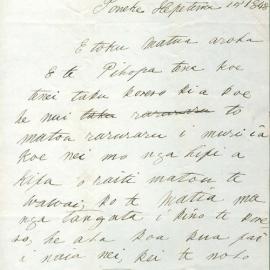 Poneke Hepetema 14 1848
E toku Matua aroha
E te Pihopa tena koe
tenei taku korero kia koe
he nui taku raruraru to
matou raruraru i muri ia
koe nei mo nga hipi a
kipa o raiti matou te
wawai, ko te Matia ma
nga tangata i kino te kore
ro, he aha koa kua pai
i naia nei, kei te noho